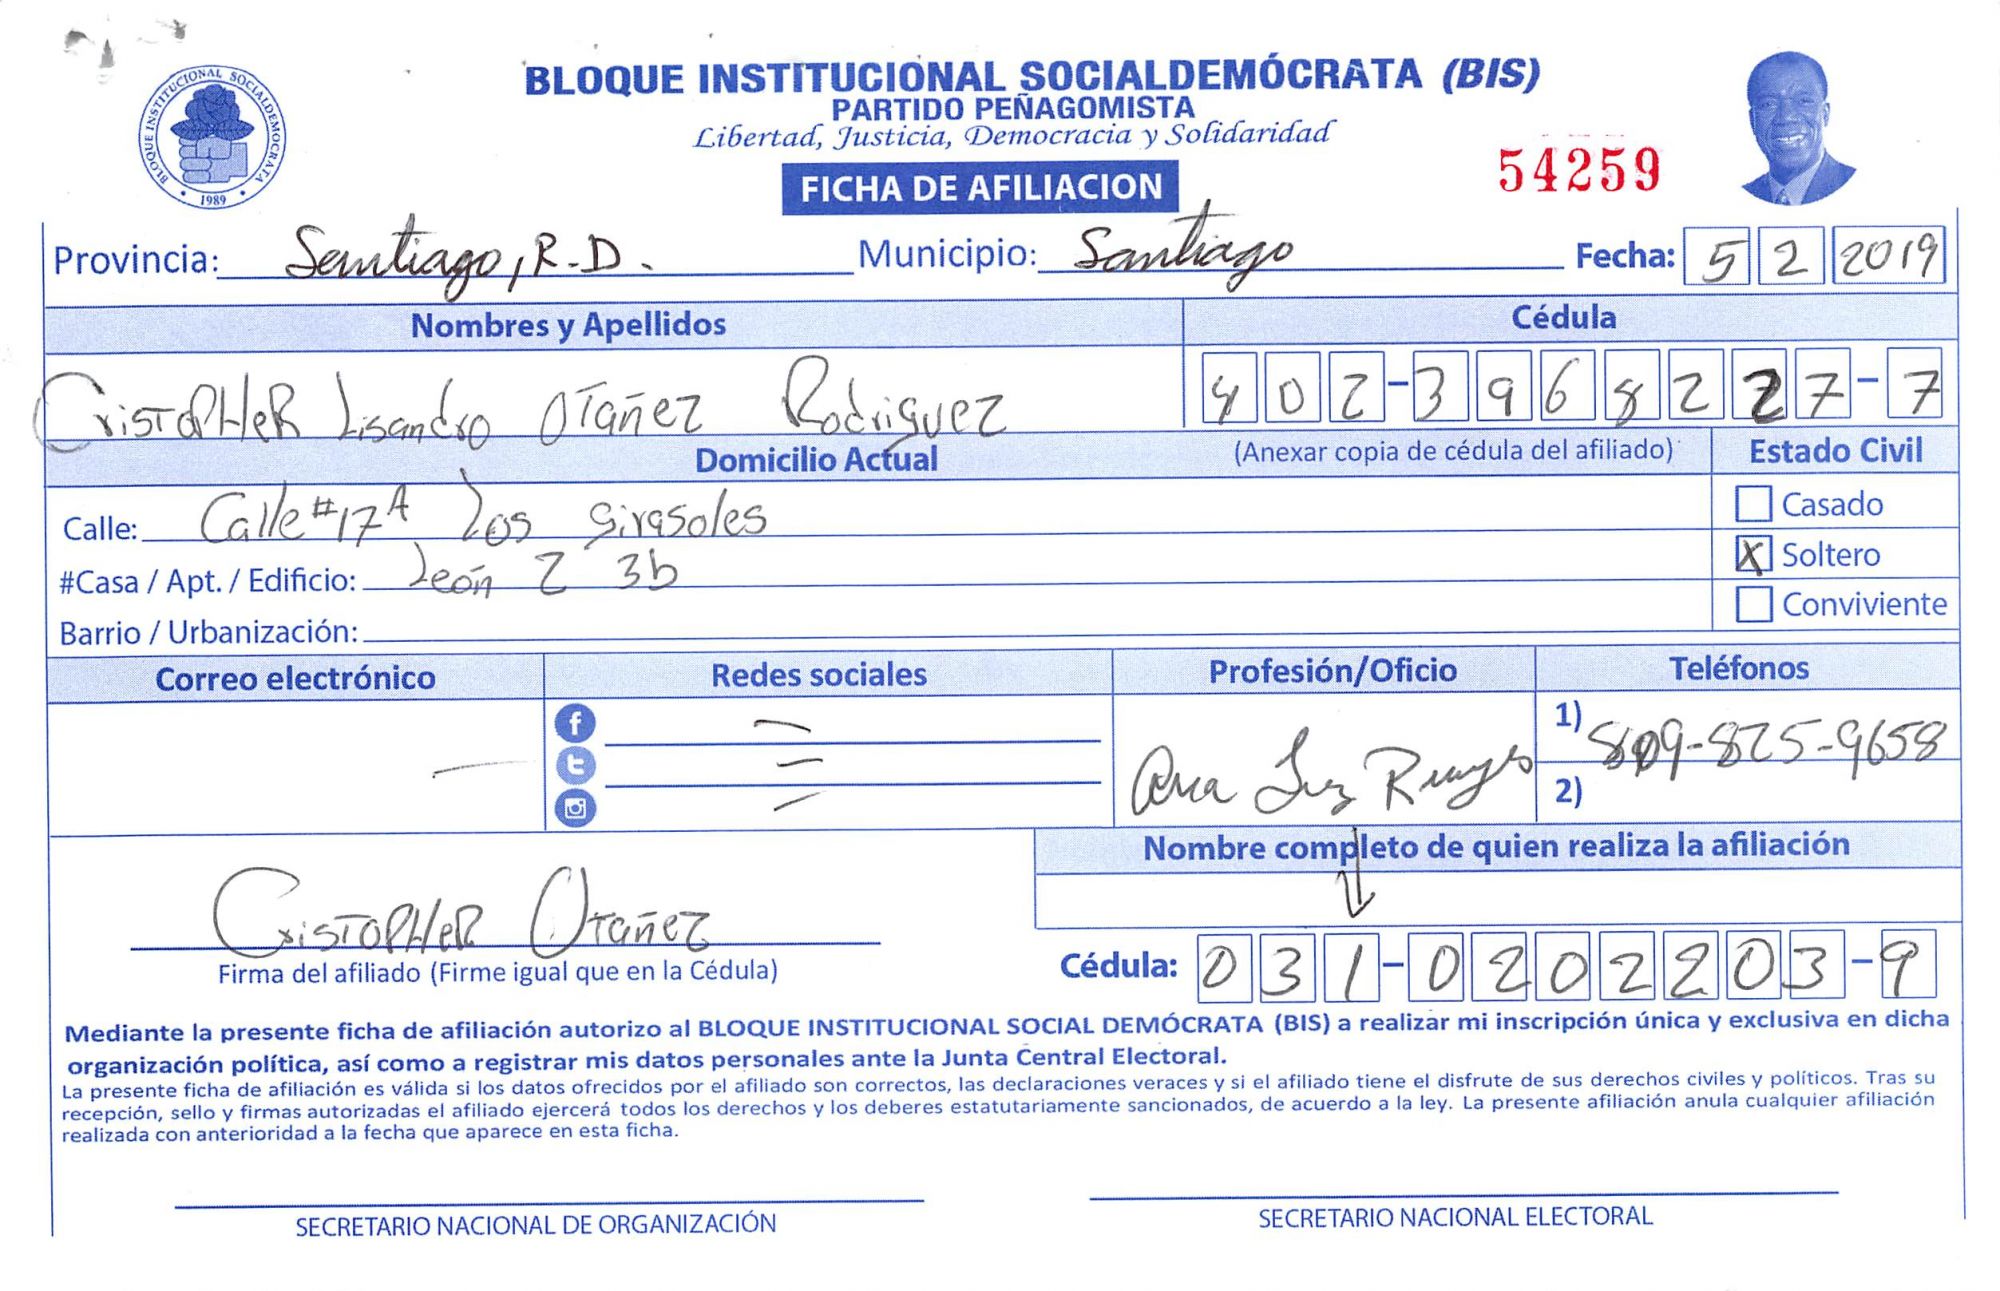 BLOQUE INSTITUCIONAL SOCIALDEMOCRATA
1989
BLOQUE INSTITUCIONAL SOCIALDEMÓCRATA (BIS)
PARTIDO PEÑAGOMISTA
Libertad, Justicia, Democracia y Solidaridad
FICHA DE AFILIACION
54259
Provincia: Santiago, R.D. Municipio: Santiago Fecha: 5 2 2019
Nombres y Apellidos Cédula
CristopHer Lisandro Otañez Rodriguez 402-3968227-7
Domicilio Actual (Anexar copia de cédula del afiliado) Estado Civil
Calle: Calle #17A Los girasoles Casado
#Casa / Apt. / Edificio: León 2 3b X Soltero
Barrio / Urbanización: Conviviente
Correo electrónico Redes sociales Profesión/Oficio Teléfonos
1) 809-825-9658
Ana Luz
2)
Nombre completo de quien realiza la afiliación
CristopHer Otañez
Firma del afiliado (Firme igual que en la Cédula) Cédula: 031-0202203-9
Mediante la presente ficha de afiliación autorizo al BLOQUE INSTITUCIONAL SOCIAL DEMÓCRATA (BIS) a realizar mi inscripción única y exclusiva en dicha
organización política, así como a registrar mis datos personales ante la Junta Central Electoral.
La presente ficha de afiliación es válida si los datos ofrecidos por el afiliado son correctos, las declaraciones veraces y si el afiliado tiene el disfrute de sus derechos civiles y políticos. Tras su
recepción, sello y firmas autorizadas el afiliado ejercerá todos los derechos y los deberes estatutariamente sancionados, de acuerdo a la ley. La presente afiliación anula cualquier afiliación
realizada con anterioridad a la fecha que aparece en esta ficha.
SECRETARIO NACIONAL DE ORGANIZACIÓN SECRETARIO NACIONAL ELECTORAL